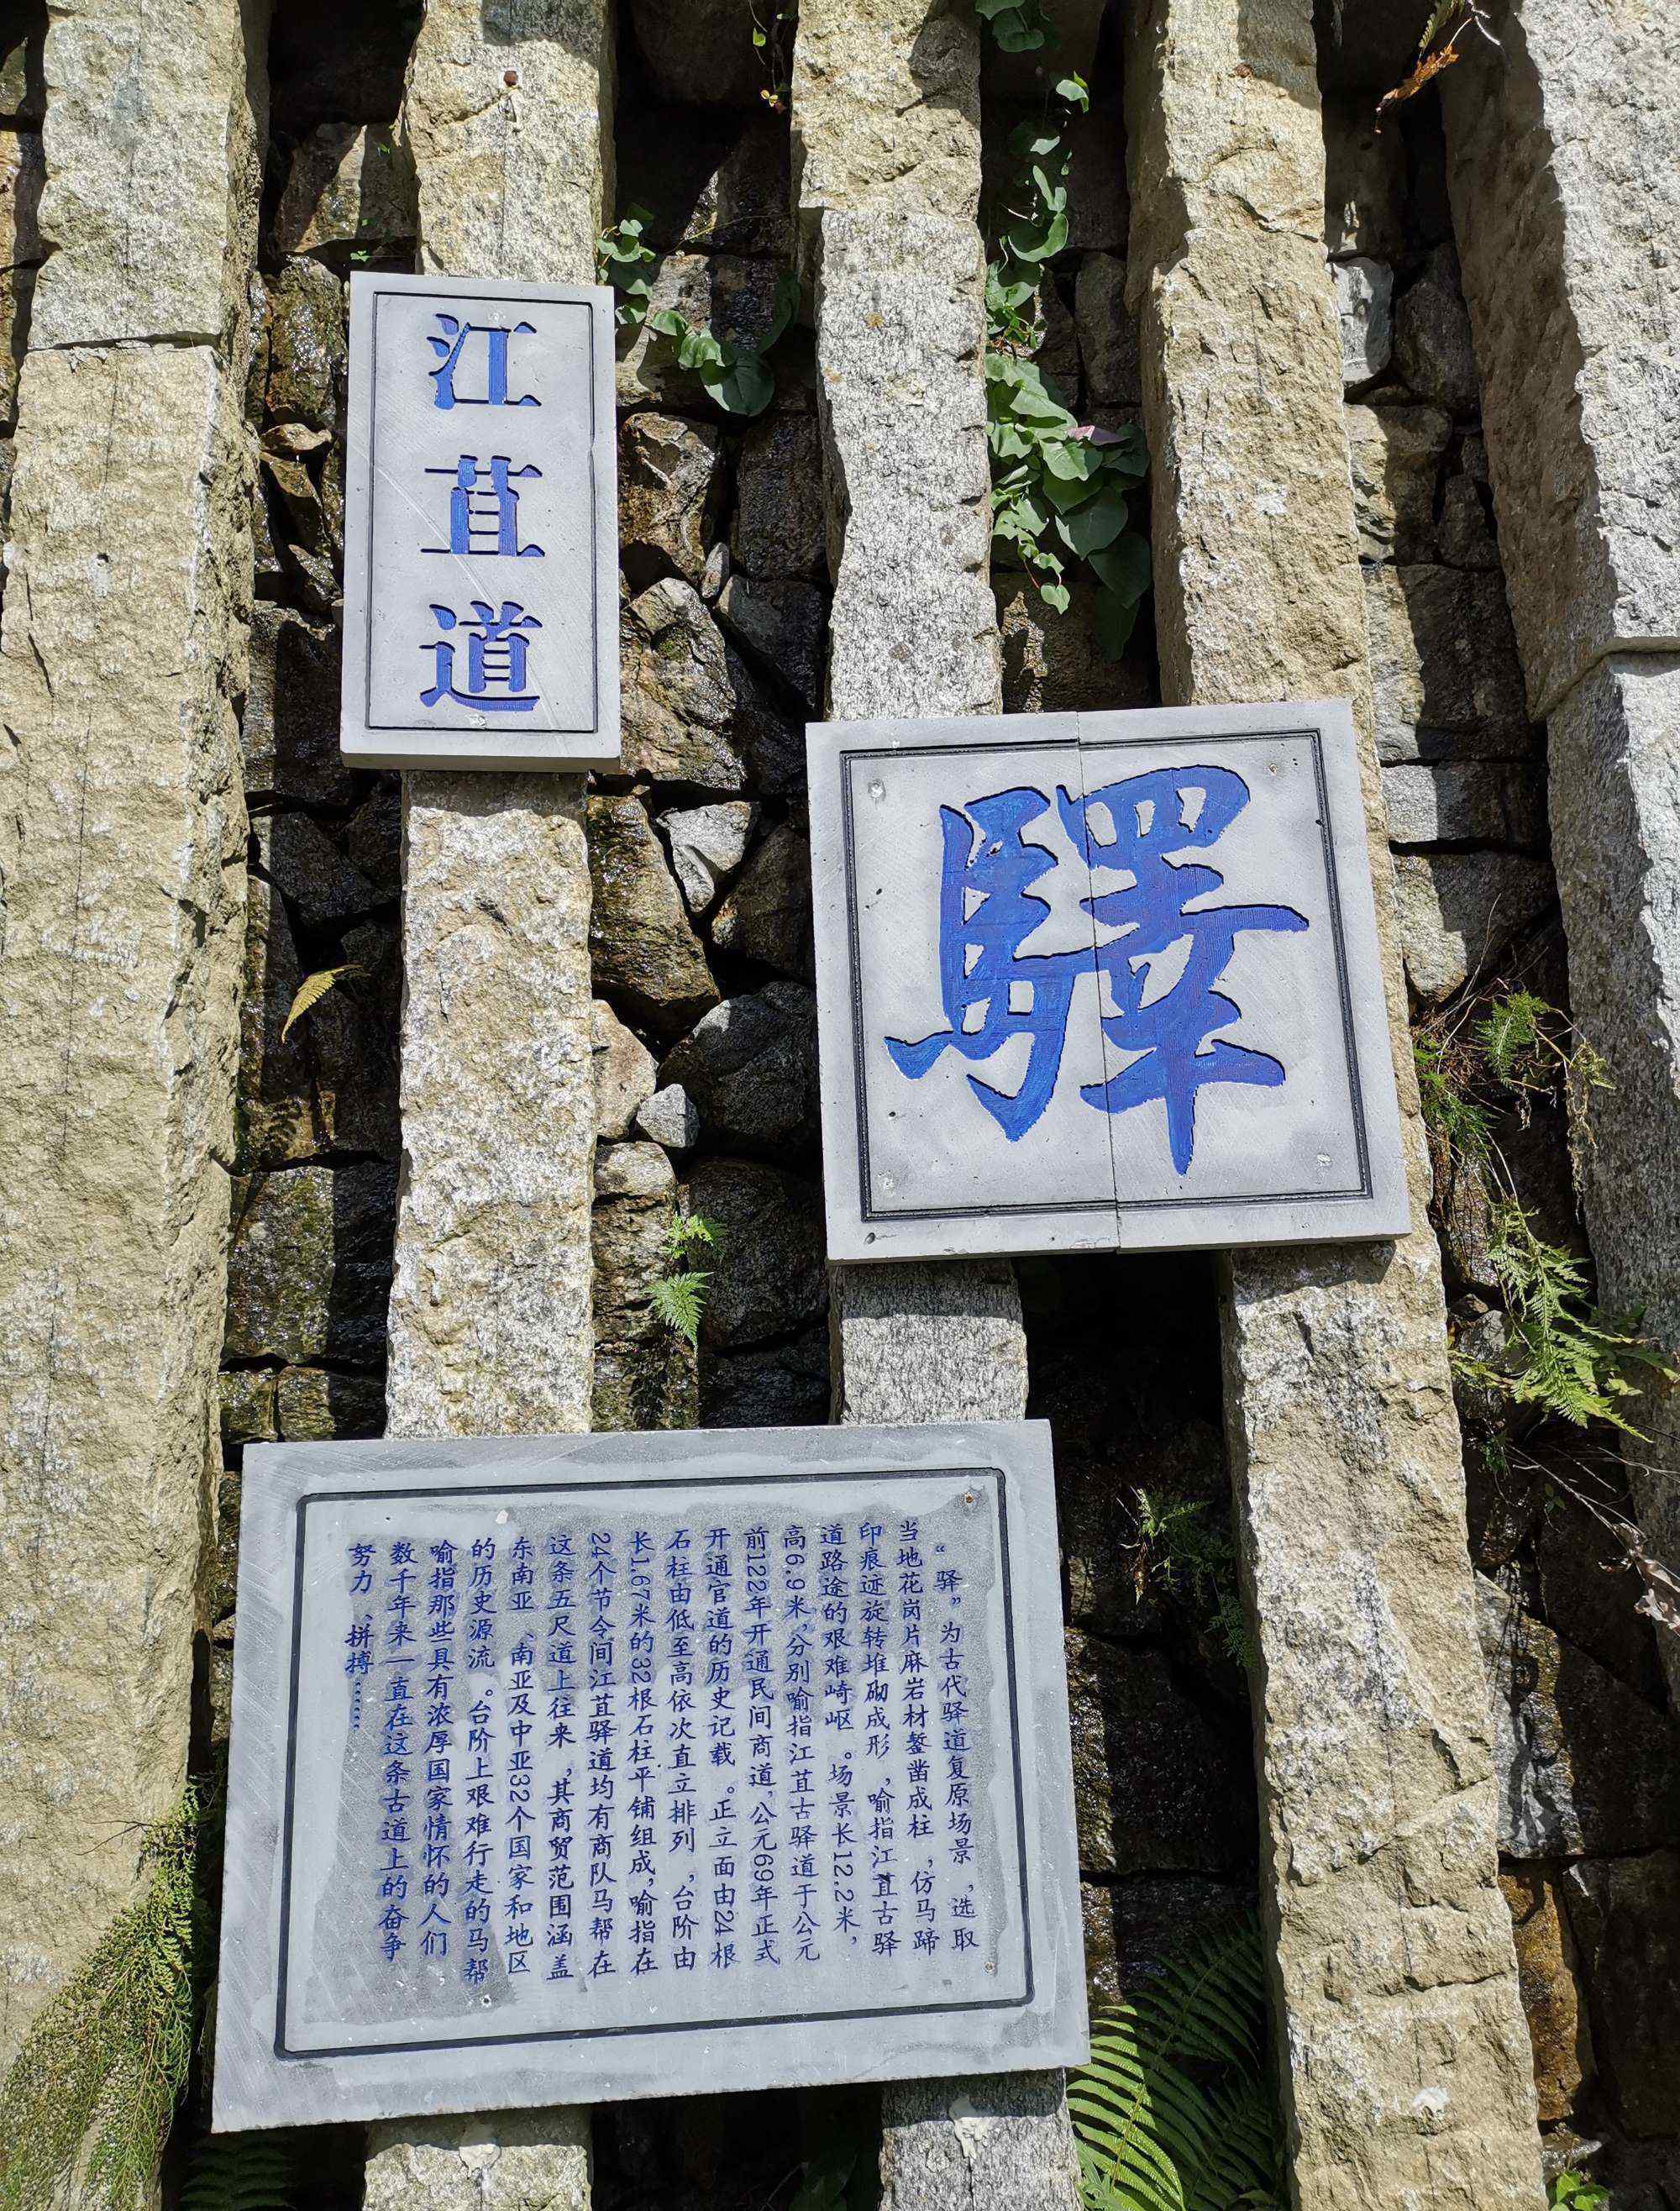 江苴道
驛
“驿”为古代驿道复原场景,选取
当地花岗片麻岩材錾凿成柱,仿马蹄
印痕迹旋转堆砌成形,喻指江苴古驿
道路途的艰难崎岖。场景长12.2米,
高6.9米,分别喻指江苴古驿道于公元
前122年开通民间商道,公元69年正式
开通官道的历史记载。正立面由24根
石柱由低至高依次直立排列,台阶由
长1.67米的32根石柱平铺组成,喻指在
24个节令间江苴驿道均有商队马帮在
这条五尺道上往来,其商贸范围涵盖
东南亚、南亚及中亚32个国家和地区
的历史源流。台阶上艰难行走的马帮
喻指那些具有浓厚国家情怀的人们
数千年来一直在这条古道上的奋争
努力、拼搏……